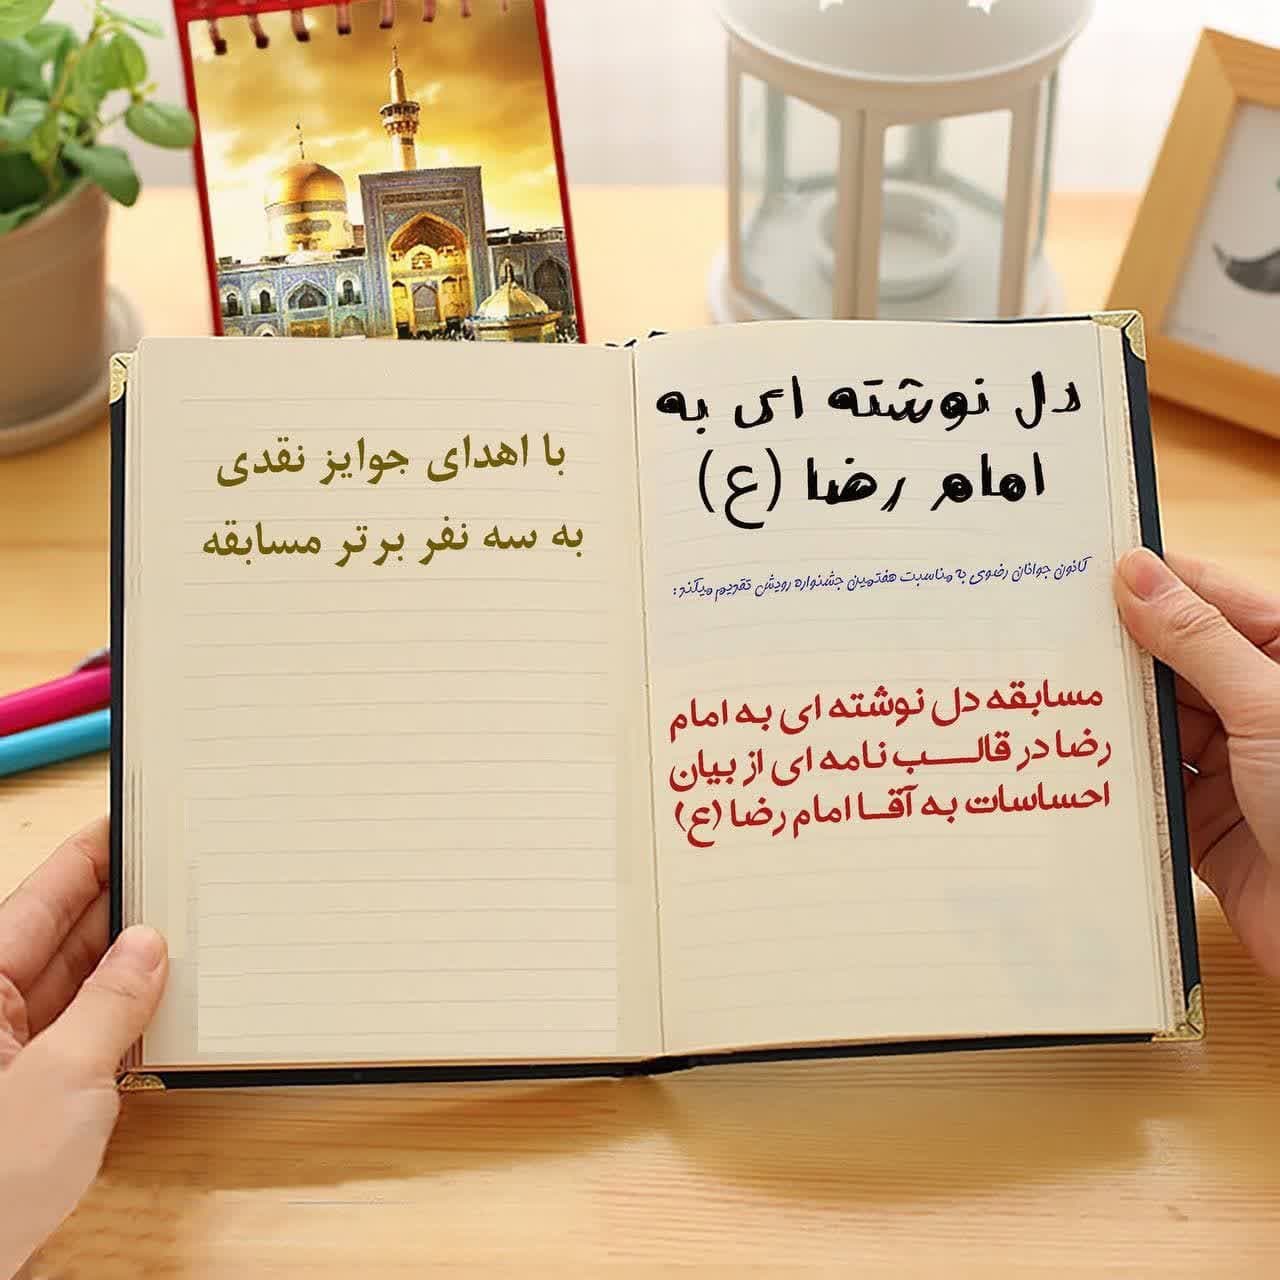 دل نوشته ای به
امام رضا (ع)
کانون جوانان رضوی به مناسبت هفتمین جشنواره رویش تقدیم میکند :
مسابقه دل نوشته ای به امام
رضا در قالب نامه ای از بیان
احساسات به آقا امام رضا (ع)
با اهدای جوایز نقدی
به سه نفر برتر مسابقه